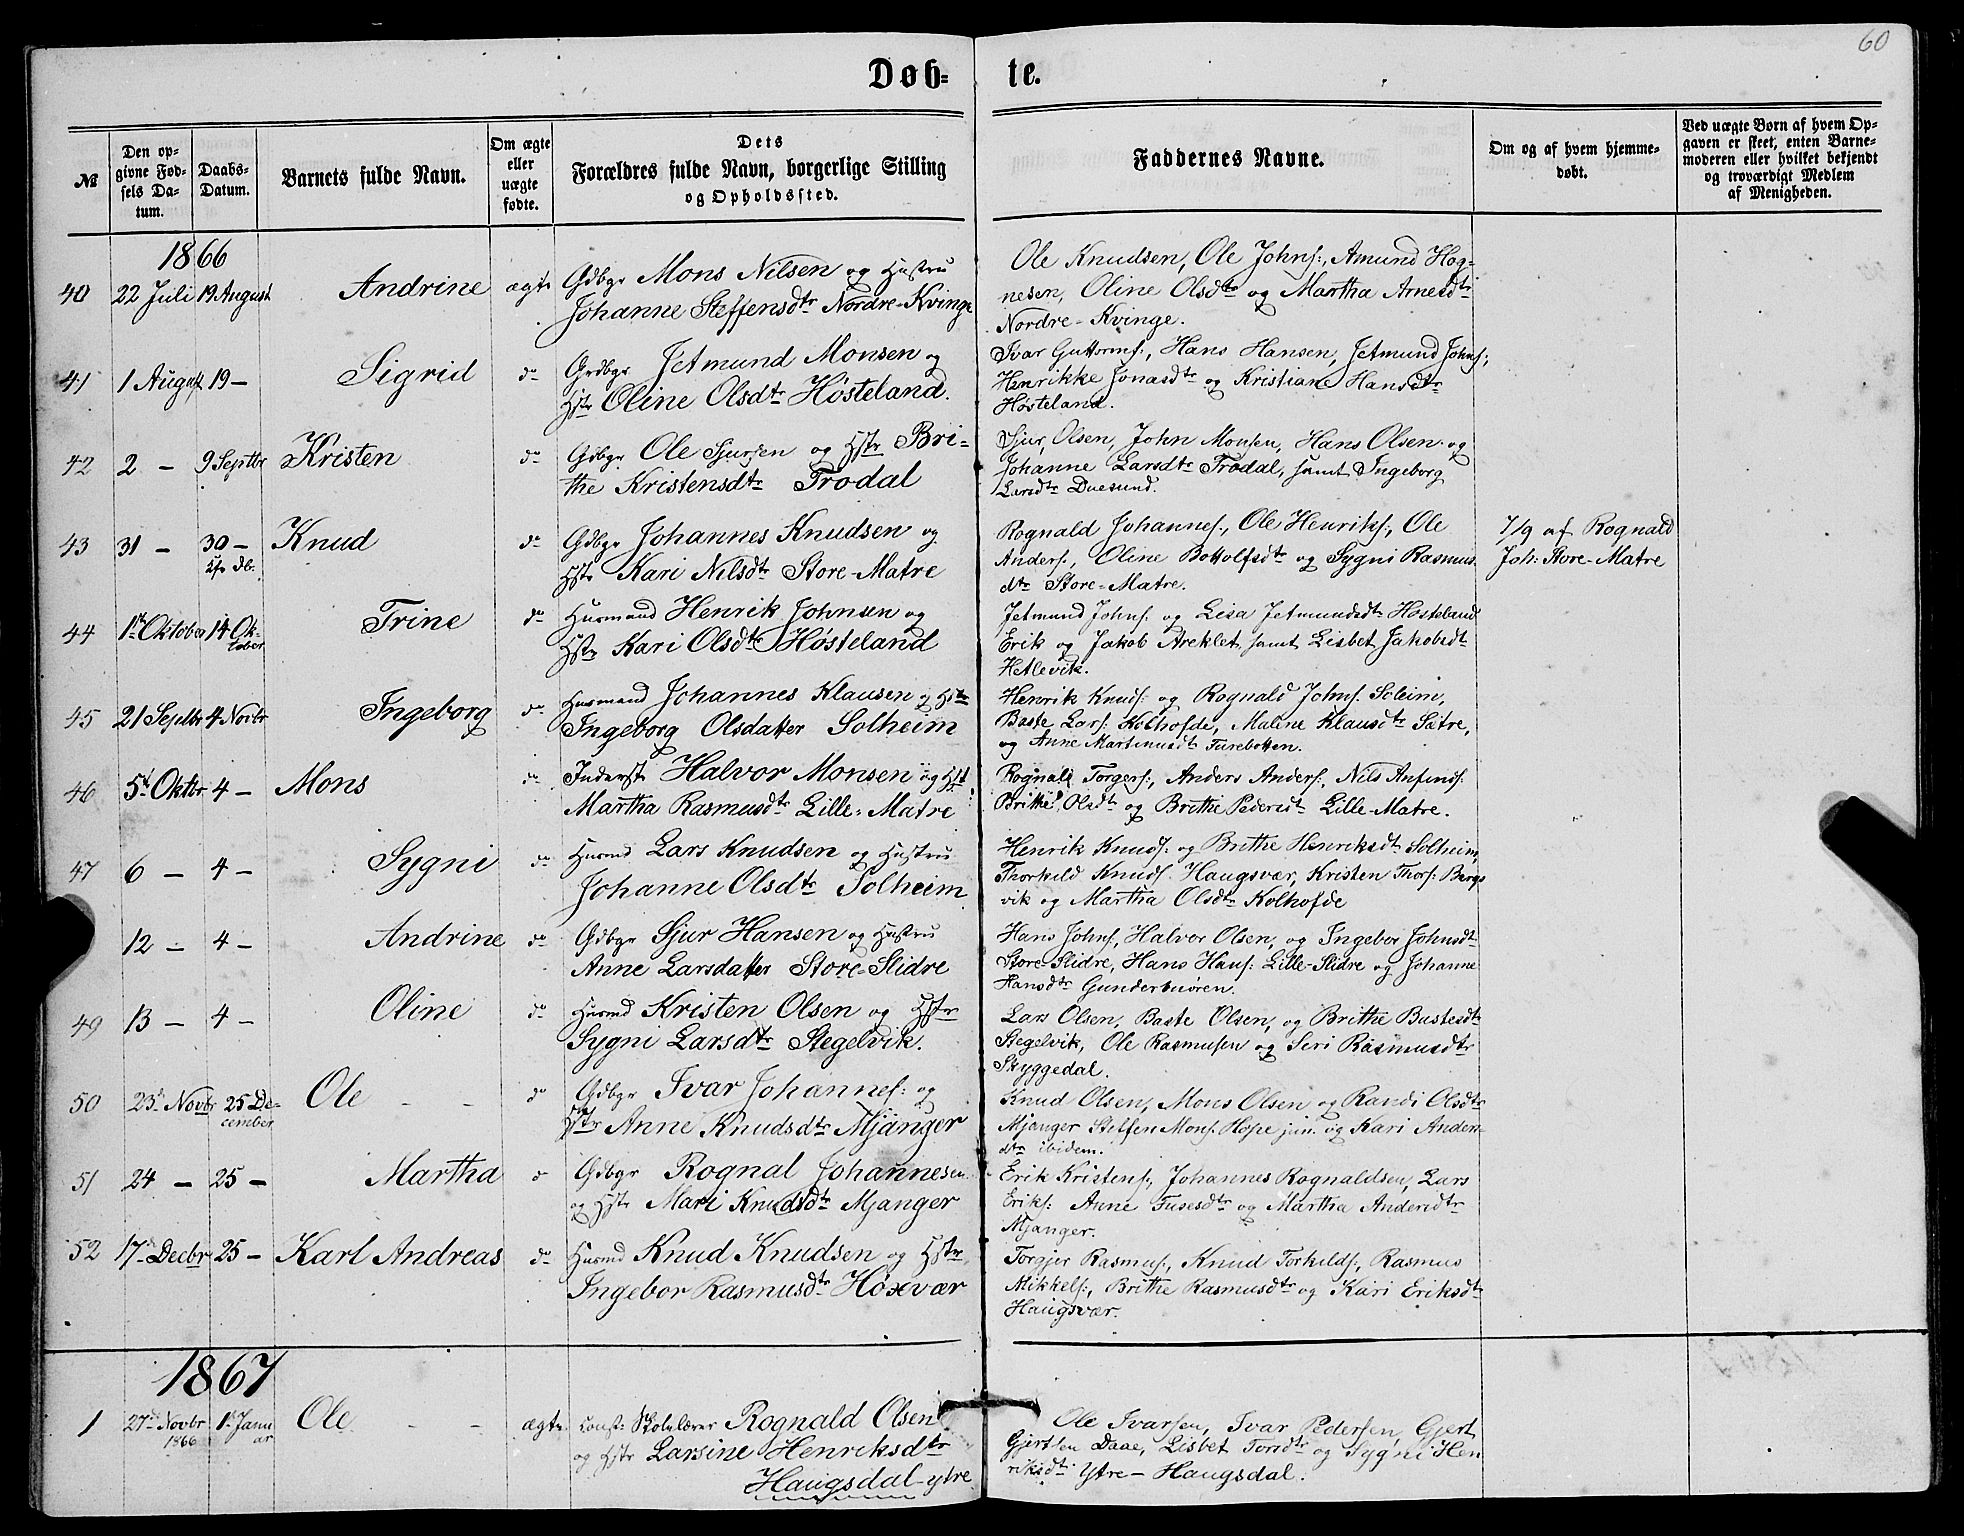 60
Døb- te.
№
Den op-
givne Fød-
sels Da-
tum.
Daabs-
Datum.
Barnets fulde Navn.
Om ægte
eller
uægte
fødte.
Dets
Forældres fulde Navn, borgerlige Stilling
og Opholdssted.
Faddernes Navne.
Om og af hvem hjemme-
døbt.
Ved uægte Børn af hvem Op-
gaven er skeet, enten Barne-
moderen eller hvilket bekjendt
og troværdigt Medlem
af Menigheden.
1866
40 22 Juli 19 August Andrine ægte
Gdbgr Mons Nilsen og Hustru
Johanne Steffensdtr Nordre-Kvinge
Ole Knudsen, Ole Johns:, Amund Hog-
nesen, Oline Olsdtr og Martha Arnesdtr
Nordre-Kvinge.
41 1 August 19 - Sigrid do
Grdbgr Jetmund Monsen og
Hstr Oline Olsdtr Høsteland.
Ivar Guttorms:, Hans Hansen, Jetmund Johns:,
Henrikke Jonasdtr og Kristiane Hansdtr
Høsteland.
42 2 - 9 Septbr Kristen do
Gdbgr Ole Sjursen og Hstr Bri-
the Kristensdtr Trodal
Sjur Olsen, John Monsen, Hans Olsen og
Johanne Larsdtr Trodal, samt Ingeborg
Larsdtr Duesund.
43 31 - 30 - Knud do
Gdbgr Johannes Knudsen og
Hstr Kari Nilsdtr Store-Matre
Rognald Johannes:, Ole Henriks:, Ole
Anders:, Oline Bottolfsdtr og Sygni Rasmus
dtr Store-Matre.
7/9 af Rognald
Joh: Store-Matre
44 1ste Oktober 14 Ok-
tober
Trine do
Husmand Henrik Johnsen og
Hstr Kari Olsdtr Høsteland
Jetmund Johns: og Lisa Jetmundsdtr Høsteland
Erik og Jakob Areklet samt Lisbet Jakobsdtr
Hetlevik.
45 21 Septbr 4 Novbr Ingeborg do
Husmand Johannes Klausen og Hstr
Ingeborg Olsdatter Solheim
Henrik Knuds: og Rognald Johns: Soleim,
Baste Lars: Kolhofde, Malene Klausdtr Sætre,
og Anne Martinusdtr Furebotten.
46 5te Oktbr 4 - Mons do
Inderst Halvor Monsen og Hst
Martha Rasmusdtr Lille-Matre
Rognald Torgers:, Anders Anders:, Nils Anfinds:
Brithe Olsdtr og Brithe Pedersdtr Lille-Matre.
47 6 - 4 - Sygni do
Husmd Lars Knudsen og Hustru
Johanne Olsdtr Solheim
Henrik Knuds: og Brithe Henriksdtr Solheim,
Thorkild Knuds. Haugsvær, Kristen Thors: Bergs
vik og Martha Olsdtr Kolhofde
12 - 4 - Andrine do
Gdbgr Sjur Hansen og Hustru
Anne Larsdatter Store-Slidre
Hans Johns:, Halvor Olsen, og Ingebor Johnsdtr
Store-Slidre, Hans Hans: Lille-Slidre og Johanne
Hansdtr
49 13 - 4 - Oline do
Husmd Kristen Olsen og Hstr
Sygni Larsdtr Stegelvik.
Lars Olsen, Baste Olsen, og Brithe Bastesdtr
Stegelvik, Ole Rasmussen og Seri Rasmusdtr
Skyggedal.
50 23de Novbr 25 De-
cember
Ole - - do
Gdbgr Ivar Johannes: og
Hstr Anne Knudsdtr Mjanger
Knud Olsen, Mons Olsen og Randi Olsdtr
Mjanger Steffen Mons: Hope jun. og Kari Anders-
dtr ibidem.
51 24 - 25 - Martha
Gdbgr Rognal Johannesen
og Hstr Mari Knudsdtr Mjanger
Erik Kristens:, Johannes Rognaldsen, Lars
Eriks: Anne Fusesdtr og Martha Andersdtr
Mjanger.
52 17de Decbr 25 - Karl Andreas do
Husmd Knud Knudsen og Hstr
Ingebor Rasmusdtr Høxvær
Torgjer Rasmus:, Knud Torkilds:, Rasmus
Mikkels:, Brithe Rasmusdtr og Kari Eriksdtr
Haugsvær.
1867
1 27de Novbr
1866
1ste Janu
ar
Ole - - ægte
const: Skolelærer Rognald Olsen
og Hstr Larsine Henriksdtr
Haugsdal-ytre
Ole Ivarsen, Ivar Pedersen, Gjert
Gjertsen Daae, Lisbet Torsdtr og Sygni Hen
riksdtr Ytre-Haugsdal.